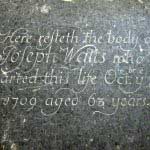 Here resteth the body o
Joseph Watts who
arted this life Oct y
1709 aged 63 years